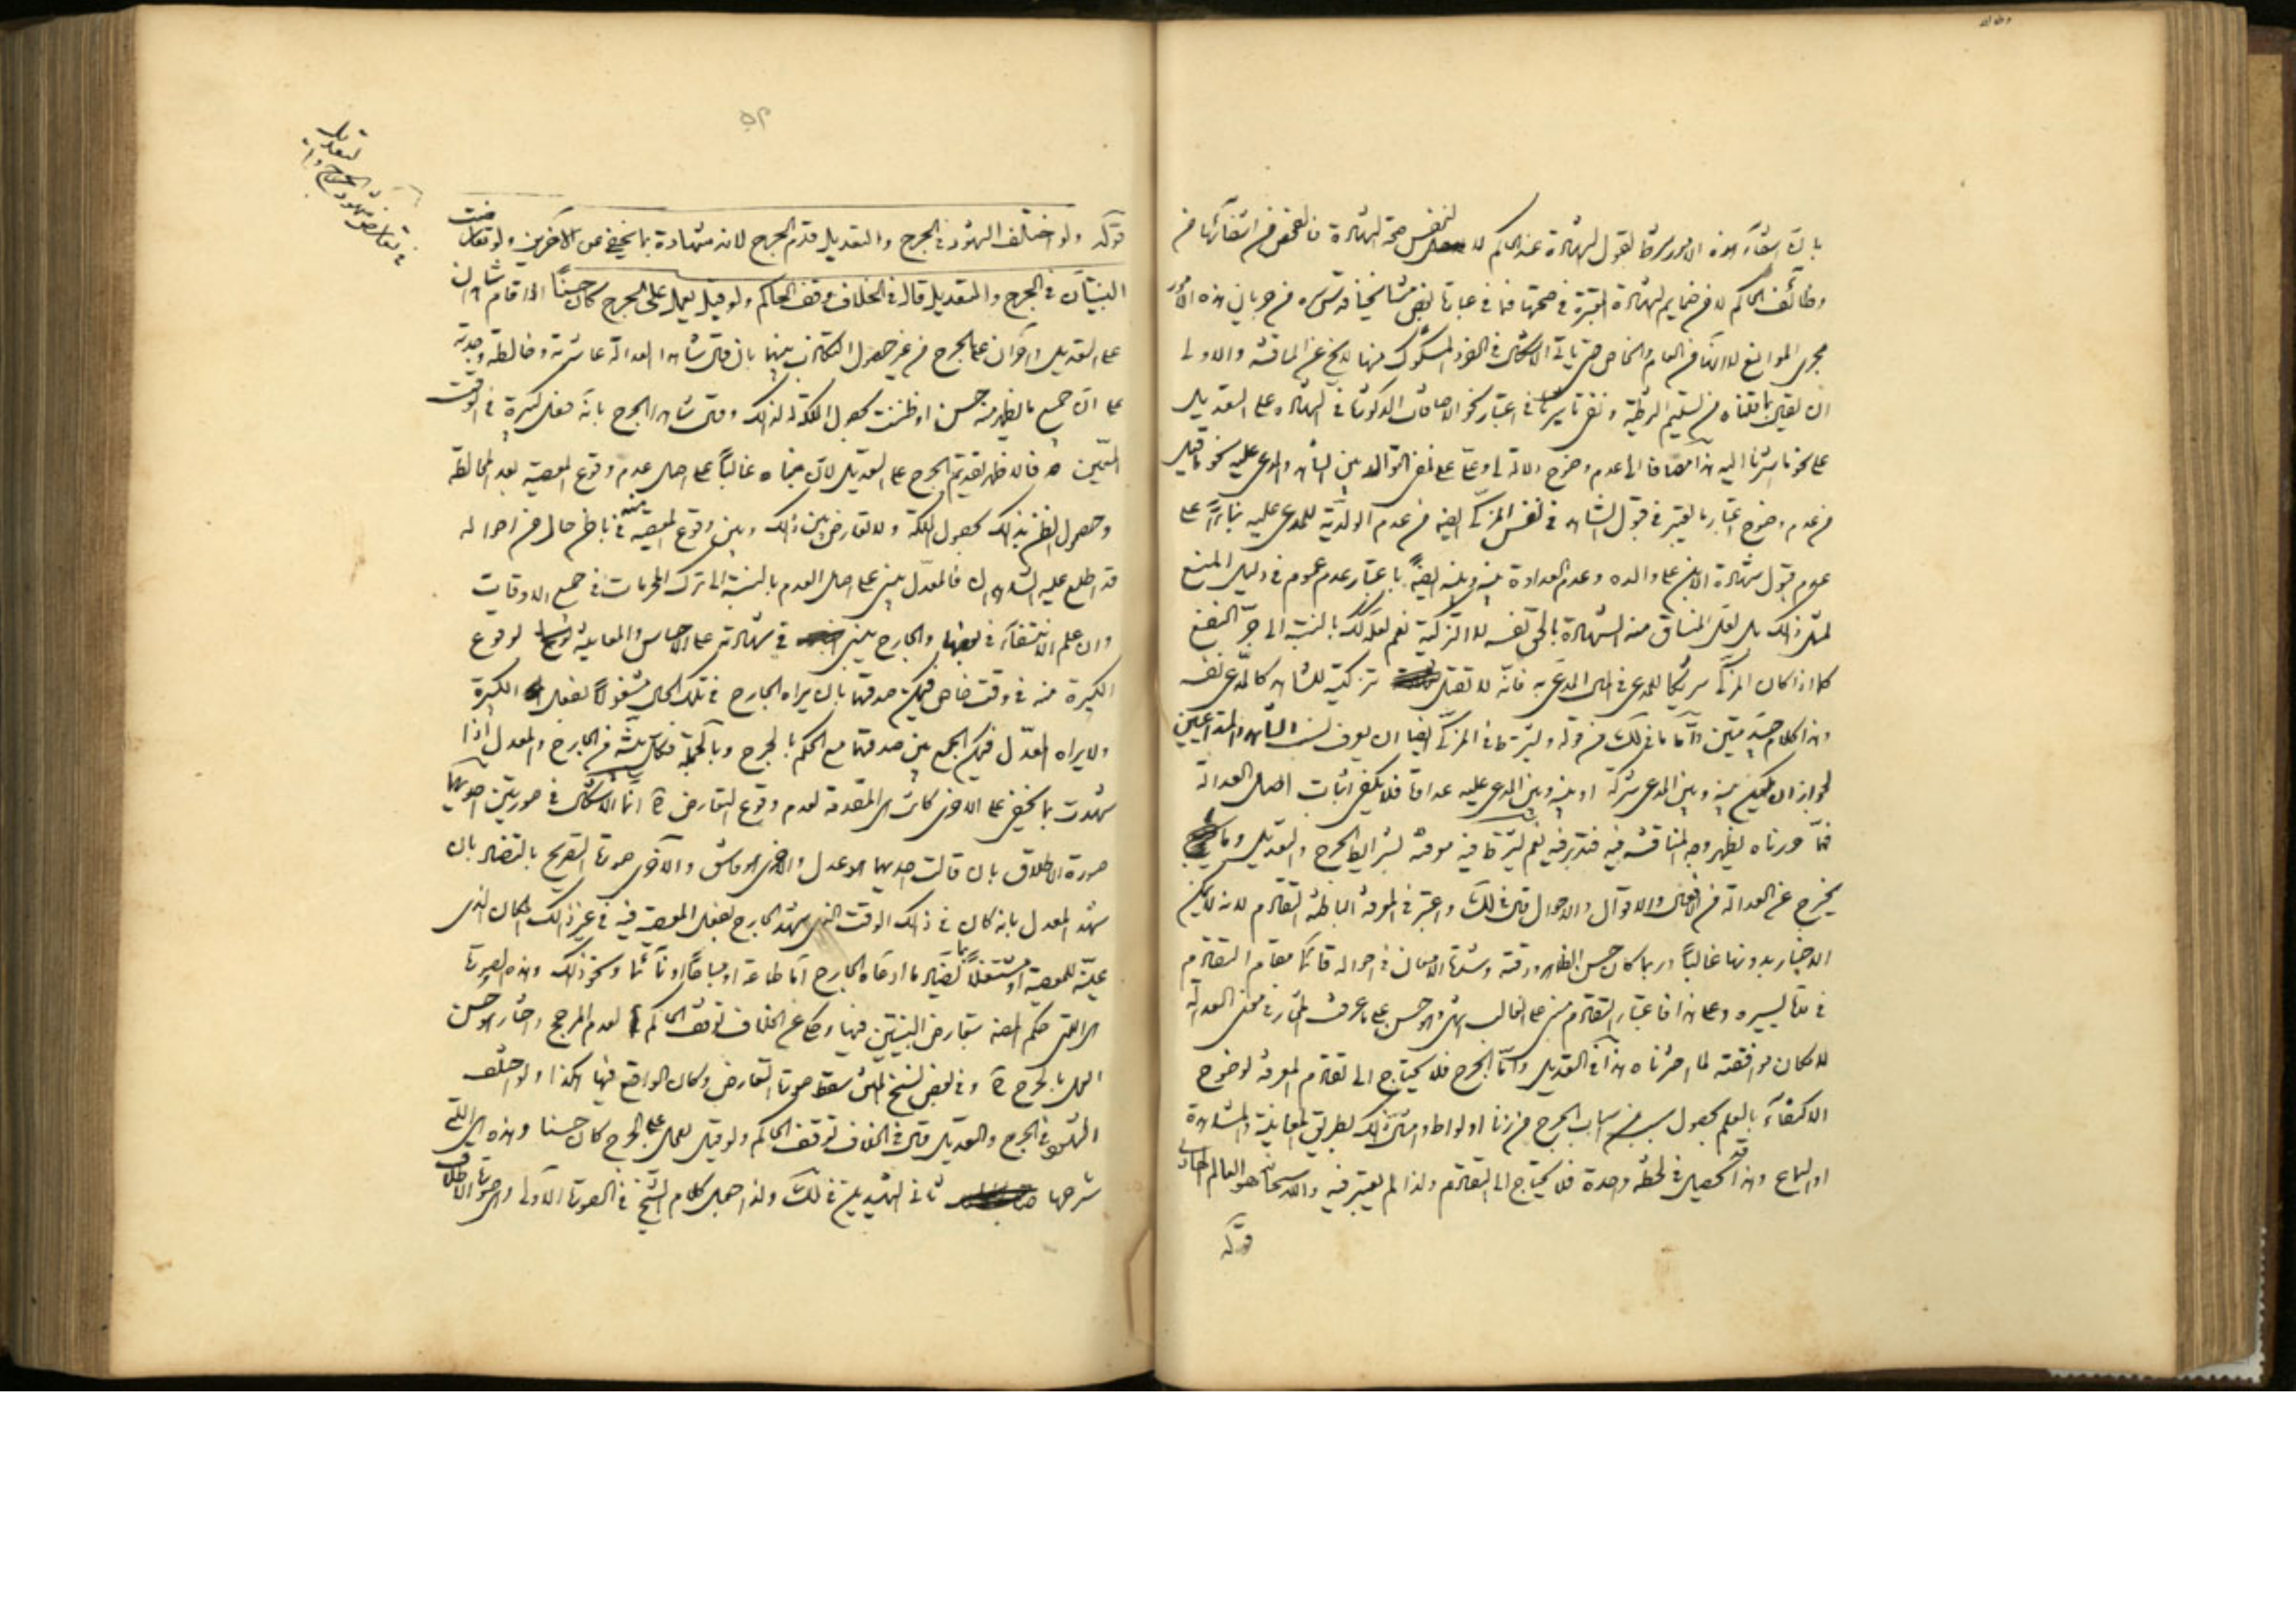 بان انتفاء هذه الامور شرط لقبول الشهادة عند الحاكم لا لنفس صحة الشهادة فالفحص من انتفائها من
وظائف الحاكم لا من ضمایم الشهادة المعتبرة في صحتها فما في عبارة بعض مشايخنا قدس سره من جريان هذه الامور
مجرى الموانع للانتفاء من العام والخاص حتى ياتى الاشكال في الفرد المشكوك منها لا يخ عن المناقشة والاولى
ان يقال بما قلناه من تسليم الشرطية ونفي تاثيرها في اعتبار نحو الاضافات المذكورة في الشهادة على التعديل
على نحو ما اشرنا اليه هذا مضافا الى عدم وضوح الدلالة على نفى التوالد بين الشاهد والمدعى عليه نحو ما قيل
من عدم وضوح اعتبار ما يعتبر في قبول الشاهد في نفس المزكى ايضا من عدم الولدية للمدعى عليه بناءً على
عدم قبول شهادة الابن على والده وعدم العداوة بينه وبينه ايضا باعتبار عدم عموم في دليل المنع
لمثل ذلك بل لعل المنساق منه الشهادة بالحق نفسه لا التزكية نعم لعله لك بالنسبة الى جر النفع
كما اذا كان المزكى شريكا للمدعى في المال المدعى به فانه لا تقبل تزكيته للشاهد كالمدعى نفسه
وهذا كلام جيد متين واما ما في لك من قوله ويشترط في المزكى ايضا ان يعرف نسب الشاهد والمتداعيين
لجواز ان يكون بينه وبين المدعى شركة او بينه وبين المدعى عليه عداوة فلا يكفى اثبات اصل العدالة
فمما حررناه يظهر وجه المناقشة فيه فتدبر فيه نعم يشترط فيه معرفته لشرايط الجرح والتعديل وما
يخرج عن العدالة من الافعال والاقوال والاحوال قال في لك واعتبر في المعرفة الباطنة التقادم لانه لا يمكن
الاختبار بدونها غالبا وربما كان حسن النظر ودقته وشدة الامعان في احواله قائما مقام التقادم
في مدة يسيرة وعلى هذا فاعتبار التقادم مبنى على الغالب انتهى وهو حسن على ما عرفت المختار في معنى العدالة
لا مكان موافقته لما اخترناه هذا في التعديل واما الجرح فلا يحتاج الى تقادم المعرفة لوضوح
الاكتفاء بالعلم بحصول سبب من اسباب الجرح من زنا او لواط وامثال ذلك بطريق المعاينة والمشاهدة
او السماع وهذا قد يحصل في لحظة واحدة فلا يحتاج الى التقادم ولذا لم يعتبر فيه والله سبحانه هو العالم الهادى
قوله
۵۲
في تعارض شهود الجرح والتعديل
قوله ولو اختلف الشهود في الجرح والتعديل قدم الجرح لانه شهادة بما يخفى عن الآخرين ولو تعارضت
البينتان في الجرح والتعديل قال في الخلاف وقف الحاكم ولو قيل يعمل على الجرح كان حسنًا اذا قام شاهدان
على التعديل وآخران على الجرح من غير حصول التكاذب بينهما بان قال شاهدا العدالة عاشرته وخالطته وجدته
على ان جميع ما يظهر منه حسن او ظننت بحصول الملكة له لذلك وقال شاهدا الجرح بانه فعل كبيرة في الوقت
المعين فلا ظهر تقديم الجرح على التعديل لان مبناه غالباً على اصل عدم وقوع المعصية بعد المخالطة
وحصول الظن بذلك بحصول الملكة ولا تعارض بين ذلك وبين وقوع المعصية منه في باطن حال من احواله
قد اطلع عليه الشاهدان فالمعدل يبنى على اصل العدم بالنسبة الى ترك المحرمات في جميع الاوقات
وان علم الانتفاء في بعضها والجارح يبنى في شهادته على الاحساس والمعاينة لوقوع
الكبيرة منه في وقت خاص فيمكن صدقهما بان يراه الجارح في تلك الحال مشغولا بفعل الكبيرة
ولا يراه المعدل فيمكن الجمع بين صدقهما مع الحكم بالجرح وبالجملة فكل بينة من الجارح والمعدل اذا
شهدت بما يخفى على الاخرى كانت هي المقدمة لعدم وقوع التعارض ح انما الاشكال في صورتين احديهما
صورة الاطلاق بان قالت احديهما هو عدل والاخرى هو فاسق والاخرى صورة التصريح بالتضاد بان
شهد المعدل بانه كان في ذلك الوقت الذى شهد الجارح بفعل المعصية فيه في غير ذلك المكان الذى
عينه للمعصية او مشتغلاً بما يضاد ما ادعاه الجارح اما طاعة او مباحًا او نائما ونحو ذلك وهذه الصورة
هى التى حكم المصنف بتعارض البينتين فيها وحكى عن الخلاف توقف الحاكم لعدم المرجح واختار هو حسن
العمل بالجرح ح وفي بعض نسخ المتن سقط صورة التعارض وكان الواقع فيها هكذا ولو اختلف
الشهود في الجرح والتعديل قال في الخلاف توقف الحاكم ولو قيل يعمل على الجرح كان حسنا وهذه هى التى
شرحها ثانى الشهيدين في لك ولذا حمل كلام الشيخ في الصورة الاولى وهى صورة الاطلاق